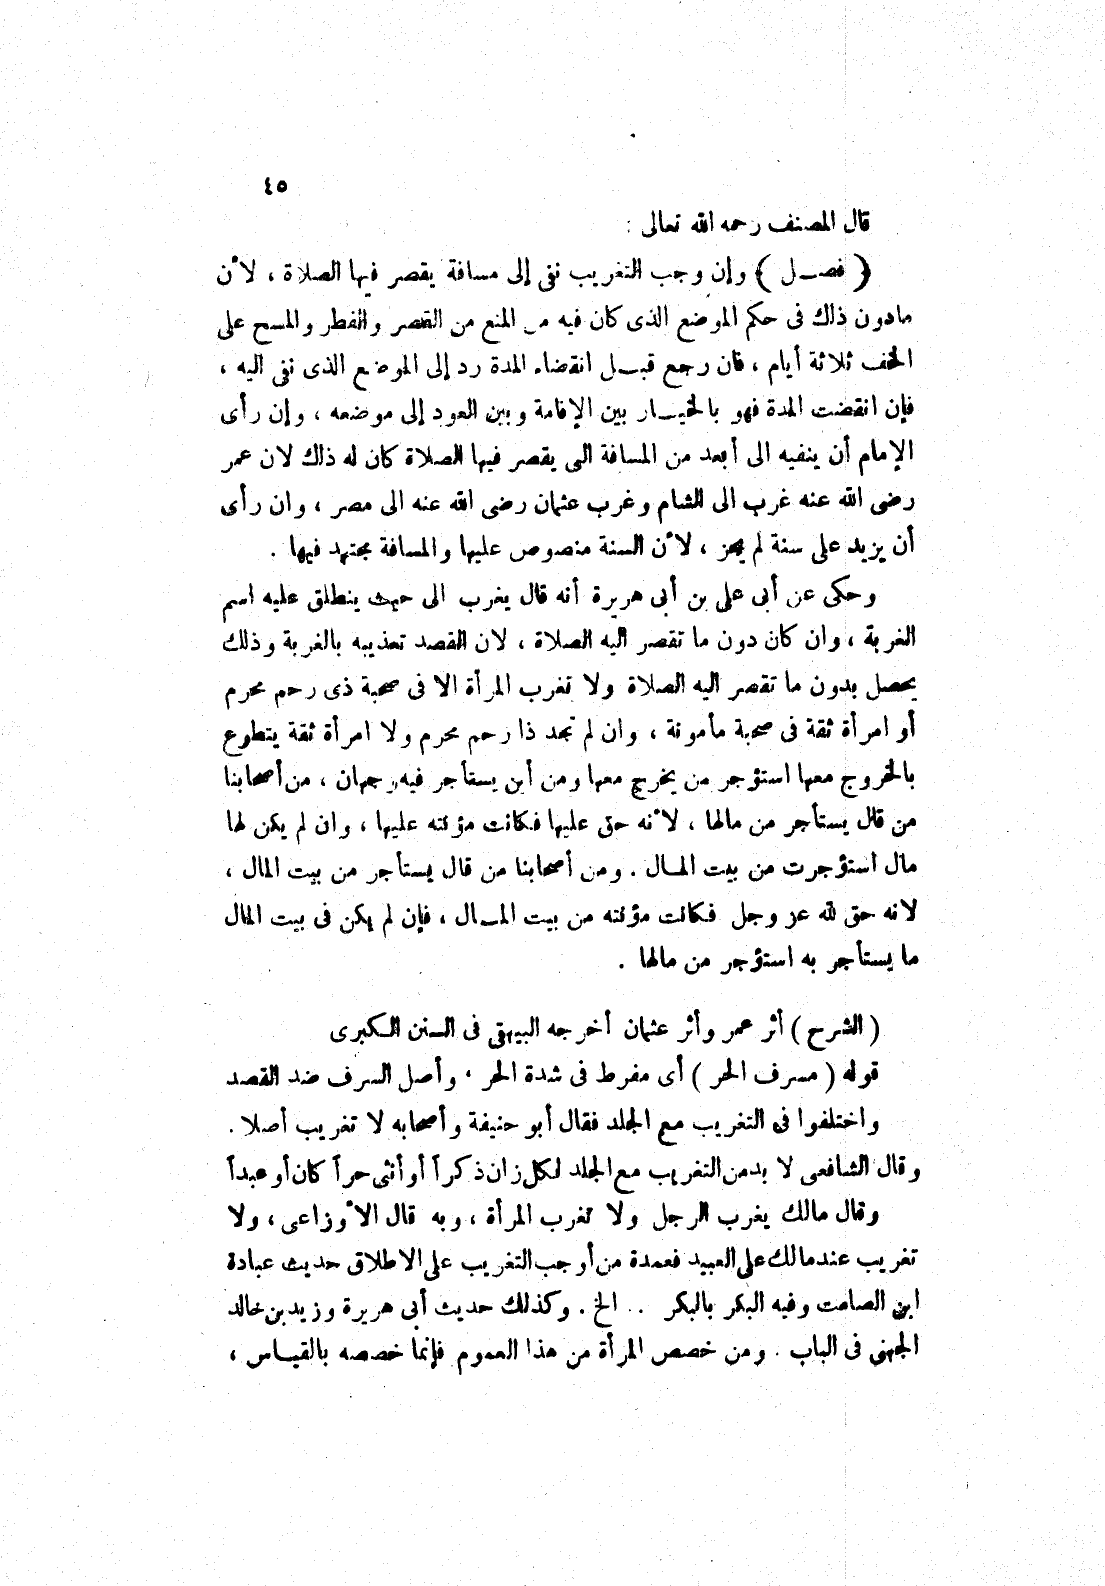 ٤٥
قال المصنف رحمه الله تعالى :
( فصـل ) وإن وجب التغريب نفى إلى مسافة يقصر فيها الصلاة ، لأن
مادون ذلك فى حكم الموضع الذى كان فيه من المنع من القصر والفطر والمسح على
الخف ثلاثة أيام ، فان رجع قبـل انقضاء المدة رد إلى الموضع الذى نفى اليه ،
فإن انقضت المدة فهو بالخيـار بين الإقامة وبين العود إلى موضعه ، وإن رأى
الإمام أن ينفيه الى أبعد من المسافة التى يقصر فيها الصلاة كان له ذلك لان عمر
رضى الله عنه غرب الى الشام وغرب عثمان رضى الله عنه الى مصر ، وان رأى
أن يزيد على سنة لم يجز ، لأن السنة منصوص عليها والمسافة مجتهد فيها .
وحكى عن أبى على بن أبى هريرة أنه قال يغرب الى حيث ينطلق عليه اسم
الغربة ، وان كان دون ما تقصر اليه الصلاة ، لان القصد تعذيبه بالغربة وذلك
يحصل بدون ما تقصر اليه الصلاة ولا تغرب المرأة الا فى صحبة ذى رحم محرم
أو امرأة ثقة فى صحبة مأمونة ، وان لم تجد ذا رحم محرم ولا امرأة ثقة يتطوع
بالخروج معها استؤجر من يخرج معها ومن أين يستأجر فيه وجهان ، من أصحابنا
من قال يستأجر من مالها ، لأنه حق عليها فكانت مؤنته عليها ، وان لم يكن لها
مال استؤجرت من بيت المـال . ومن أصحابنا من قال يستأجر من بيت المال ،
لانه حق لله عز وجل فكانت مؤنته من بيت المـال ، فإن لم يكن فى بيت المال
ما يستأجر به استؤجر من مالها .
( الشرح ) أثر عمر وأثر عثمان أخرجه البيهقى فى السنن الكبرى
قوله ( مسرف الحر ) أى مفرط فى شدة الحر . وأصل السرف ضد القصد
واختلفوا فى التغريب مع الجلد فقال أبو حنيفة وأصحابه لا تغريب أصلا .
وقال الشافعى لا بد من التغريب مع الجلد لكل زان ذكرا أو أنثى حرا كان أو عبدا
وقال مالك يغرب الرجل ولا تغرب المرأة ، وبه قال الأوزاعى ، ولا
تغريب عند مالك على العبيد فعمدة من أوجب التغريب على الاطلاق حديث عبادة
ابن الصامت وفيه البكر بالبكر .. الخ . وكذلك حديث أبى هريرة وزيد بن خالد
الجهنى فى الباب . ومن خصص المرأة من هذا العموم فإنما خصصه بالقيـاس ،